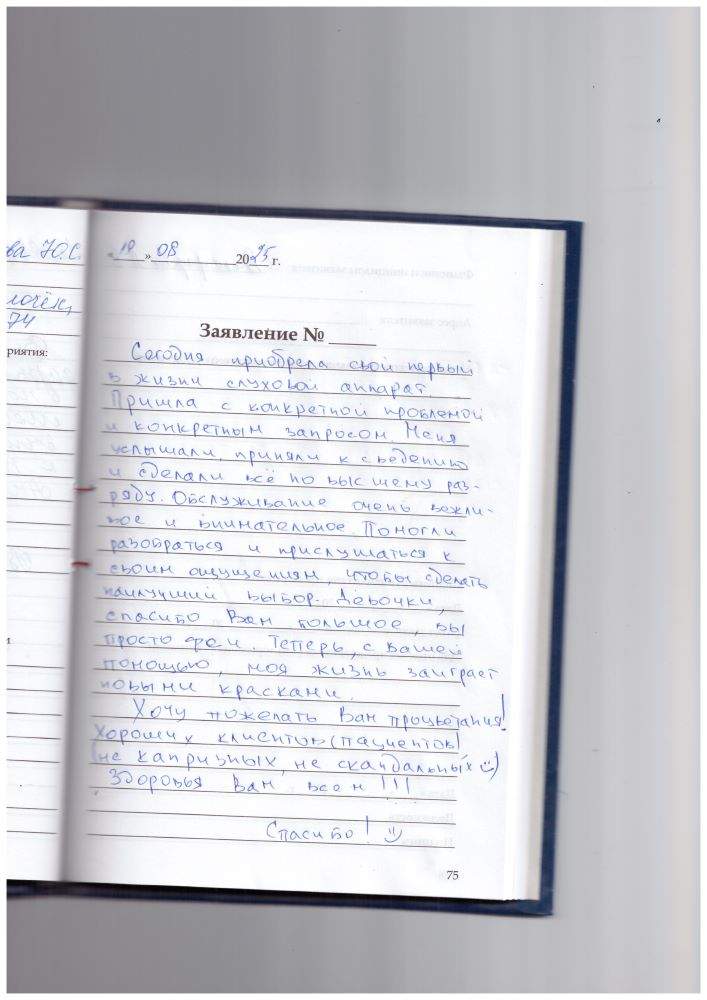 ва Ю.С.
74
приятия:
19 » 08 2025 г.
Заявление №
Сегодня приобрела свой первый
в жизни слуховой аппарат.
Пришла с конкретной проблемой
и конкретным запросом. Меня
услышали, приняли к сведению
и сделали всё по высшему раз-
ряду. Обслуживание очень вежли-
вое и внимательное. Помогли
разобраться и прислушаться к
своим ощущениям, чтобы сделать
наилучший выбор. Девочки,
спасибо Вам большое, вы
просто феи. Теперь, с вашей
помощью, моя жизнь заиграет
новыми красками.
Хочу пожелать Вам процветания!
Хороших клиентов (пациентов)
(не капризных, не скандальных ☺)
Здоровья Вам всем!!!
Спасибо! ☺
75